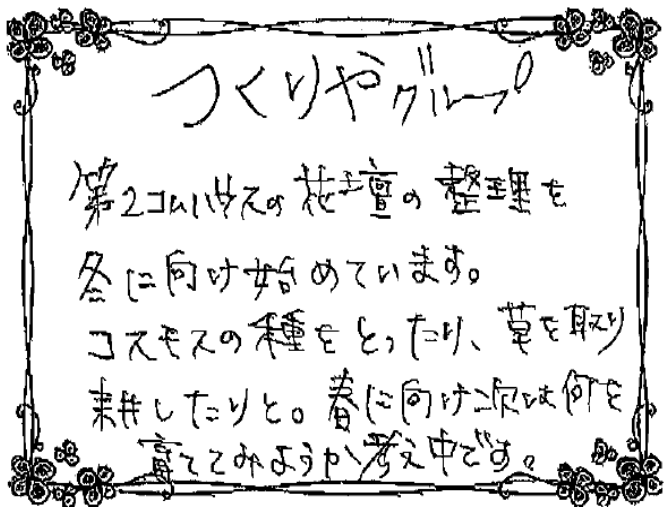 つくりやグループ
第2コムハウスの花壇の整理を
冬に向け始めています。
コスモスの種をとったり、草を取り
耕したりと。春に向け次は何を
育ててみようか考え中です。